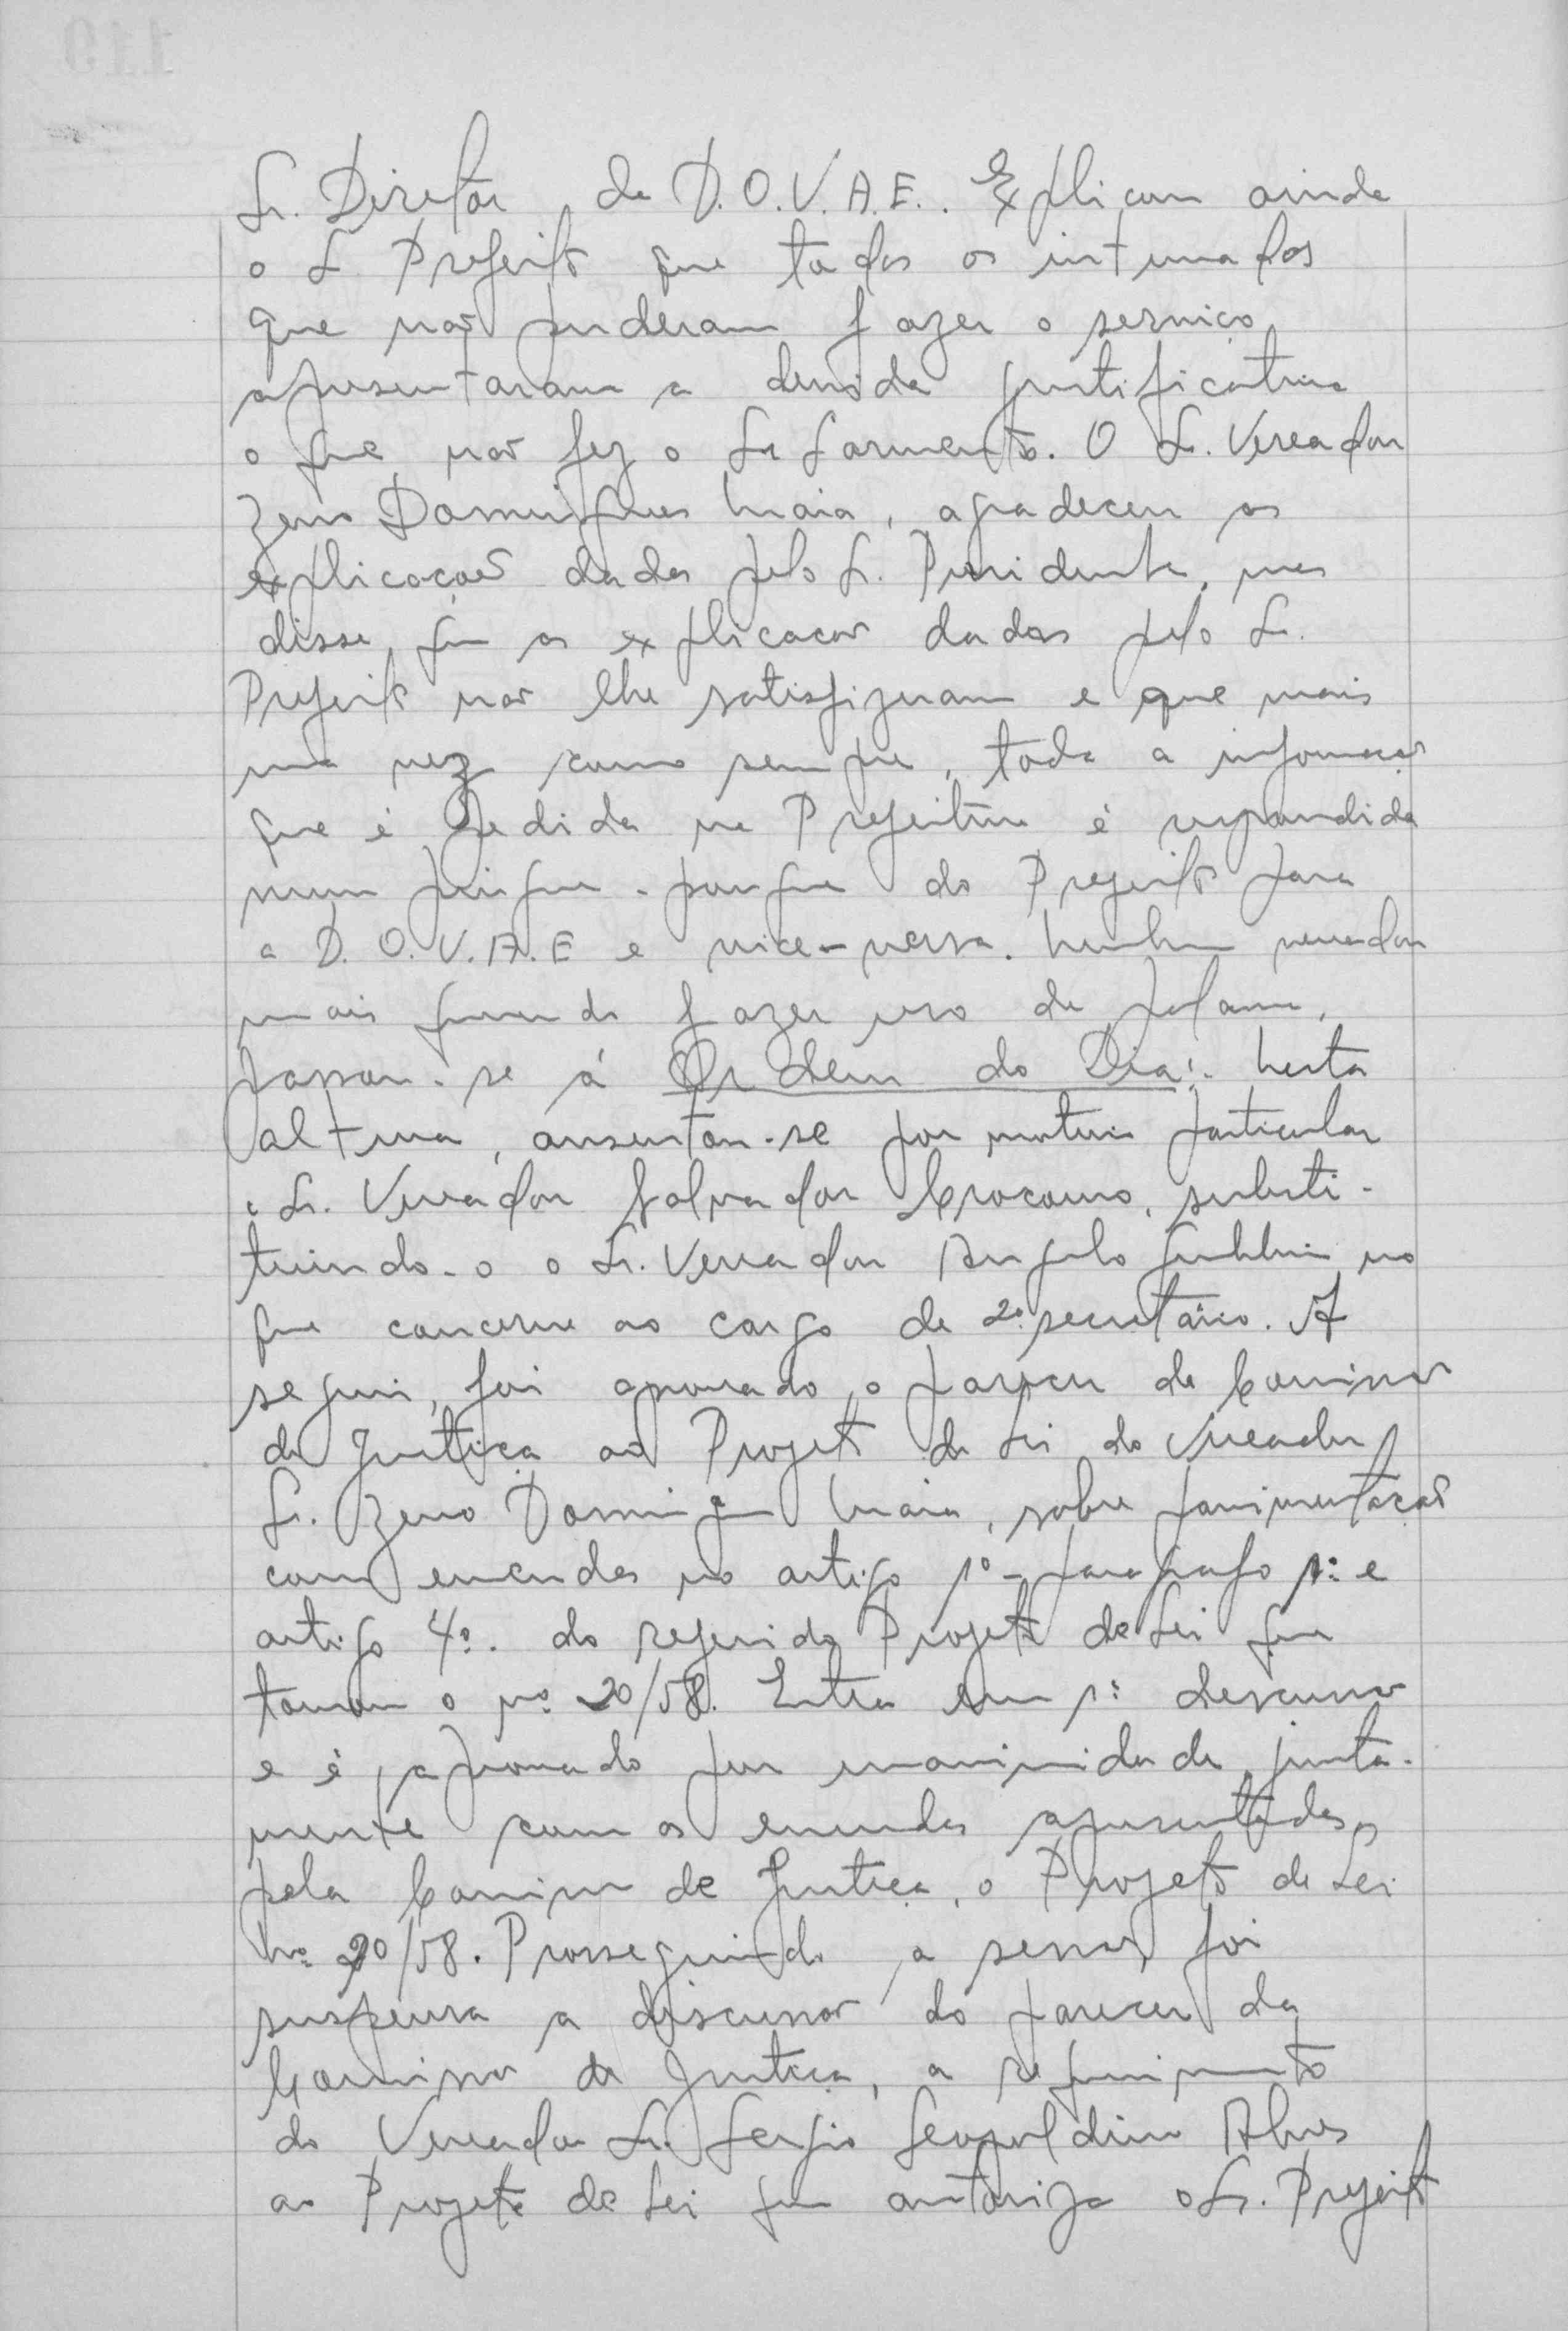 Sr. Diretor da D.O.V.A.E.. Explicou ainda
o Sr Prefeito que todos os intimados
que não puderam fazer o serviço,
apresentaram a devida justificativa
o que não fez o Sr Sarmento. O Sr. Vereador
Zeno Domingues Maia, agradeceu as
explicações dadas pelo Sr. Presidente, mas
disse que as explicações dadas pelo Sr.
Prefeito não lhe satisfizeram e que mais
uma vez como sempre, toda a informação
que é pedida na Prefeitura é respondida
num pingue-pongue do Prefeito para
a D.O.V.A.E e vice-versa. Nenhum vereador
mais querendo fazer uso da palavra,
passou-se á Ordem do Dia:. Nesta
altura, ausentou-se por motivo particular
o Sr. Vereador Salvador Crocomo, substi-
tuindo-o o Sr. Vereador Angelo no
que concerne ao cargo de 2º secretário. A
seguir, foi aprovado o parecer da Comissão
de Justiça ao Projeto de Lei do Vereador
Sr. Zeno Domingues Maia, sobre pavimentação
com emendas no artigo 1º - parágrafo 1º e
artigo 4º. do referido Projeto de Lei que
tomou o nº 20/58. Entra em 1ª discussão
e é aprovado por unanimidade junta-
mente com as emendas apresentadas
pela Comissão de Justiça, o Projeto de Lei
Nº 20/58. Prosseguindo a sessão, foi
suspensa a discussão do parecer da
Comissão de Justiça, a requerimento
do Vereador Sr. Sergio Leopoldino Alves
ao Projeto de Lei que autoriza o Sr. Prefeito